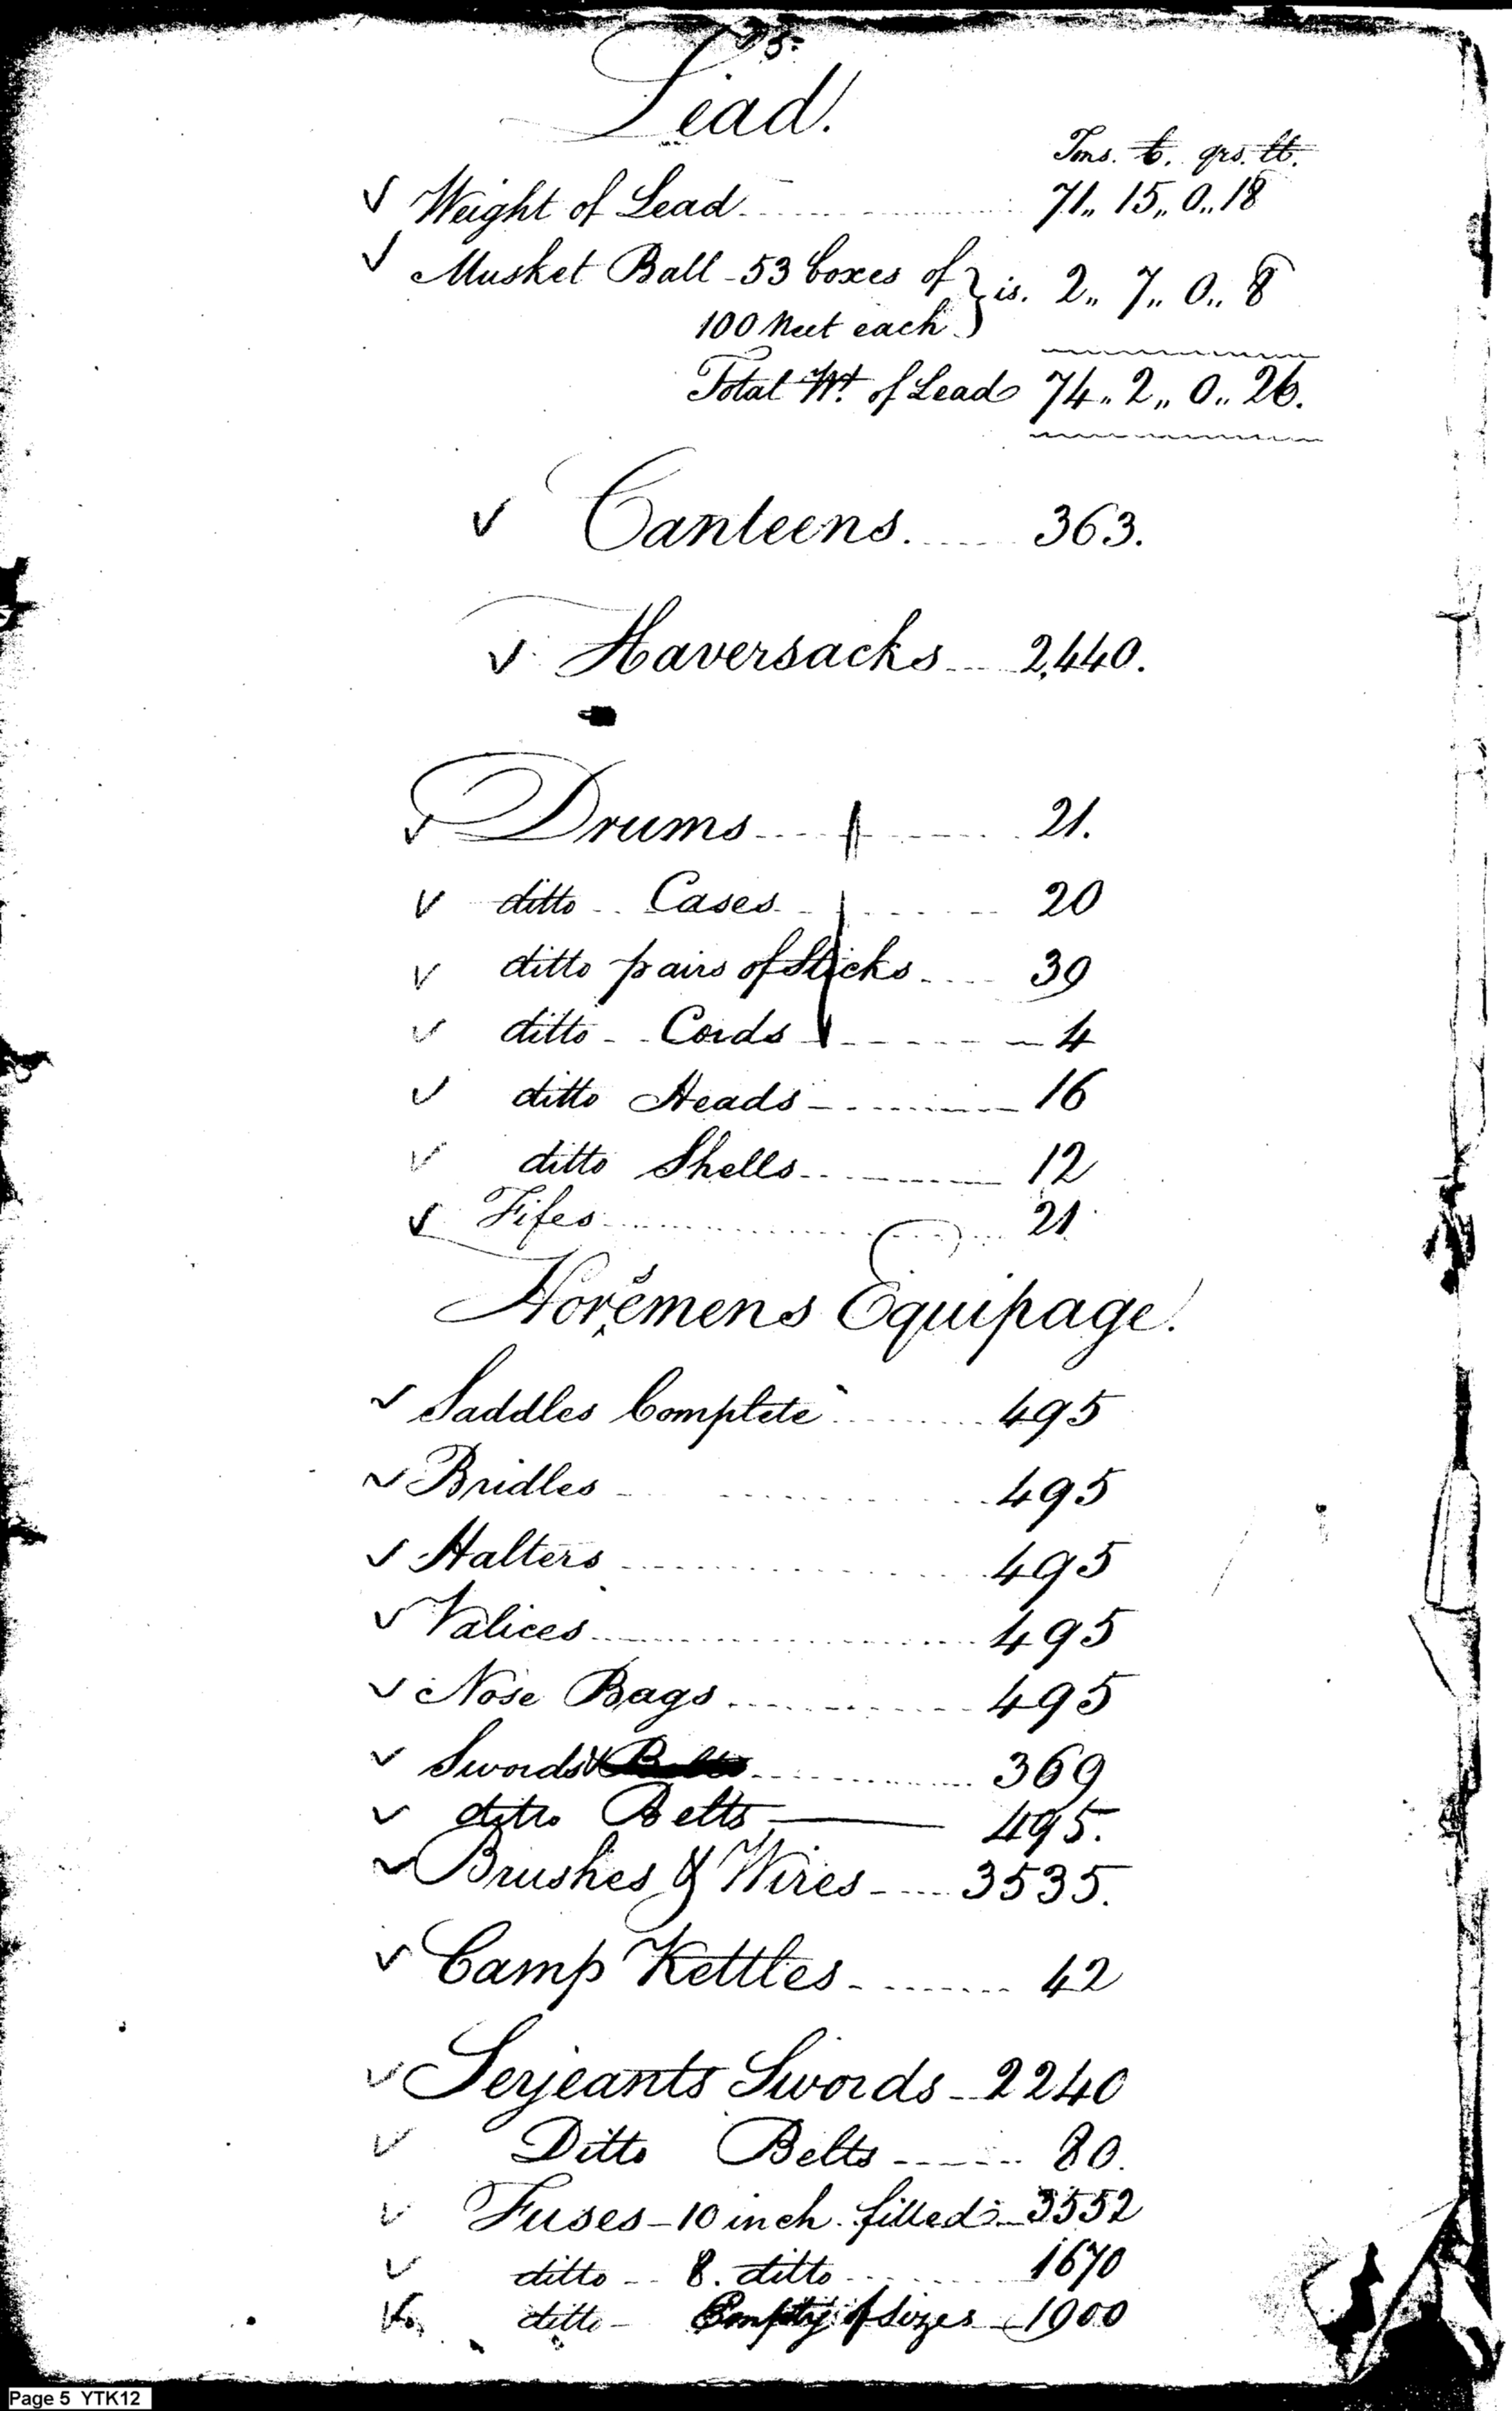 5.
Lead.
Tons. C. qrs. lb.
✓ Weight of Lead 71,, 15,, 0,, 18
✓ Musket Ball - 53 boxes of } is. 2,, 7,, 0,, 8
100 Neet each }
Total Wt. of Lead 74,, 2,, 0,, 26.
✓ Canteens. 363.
✓ Haversacks 2,440.
✓ Drums 21.
✓ ditto Cases 20
✓ ditto pairs of Sticks 39
✓ ditto Cords 4
✓ ditto Heads 16
✓ ditto Shells 12
✓ Fifes 21
Horsemens Equipage.
✓ Saddles Complete 495
✓ Bridles 495
✓ Halters 495
✓ Valices 495
✓ Nose Bags 495
✓ Swords & Belts 369
✓ ditto Belts 495.
✓ Brushes & Wires 3535.
✓ Camp Kettles 42
✓ Serjeants Swords 2240
✓ Ditto Belts 80.
✓ Fuses - 10 inch filled 3552
✓ ditto 8. ditto 1670
✓ ditto Empty of Sizes 1900
Page 5 YTK12